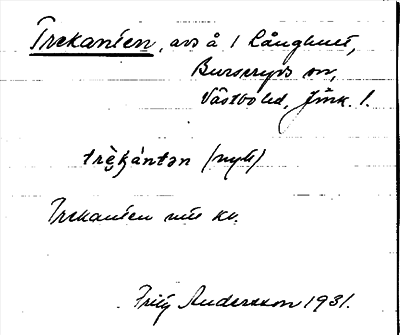 Trekanten, avs å 1 Långhult,
Burseryds sn,
Västbo hd, Jönk. l.
trèkántən (nytt)
Trekanten mtl kv.
Fritz Andersson 1931.